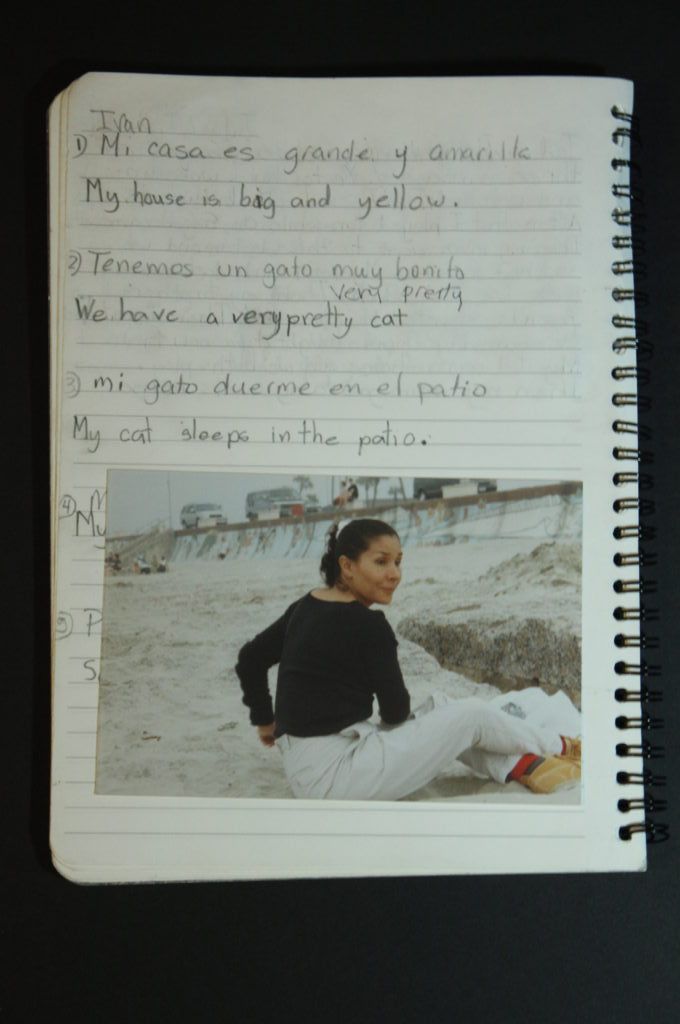 Ivan
1) Mi casa es grande y amarilla
My house is big and yellow.
2) Tenemos un gato muy bonito
very pretty
We have a very pretty cat
3) mi gato duerme en el patio
My cat sleeps in the patio.
4) M
My
5) P
S